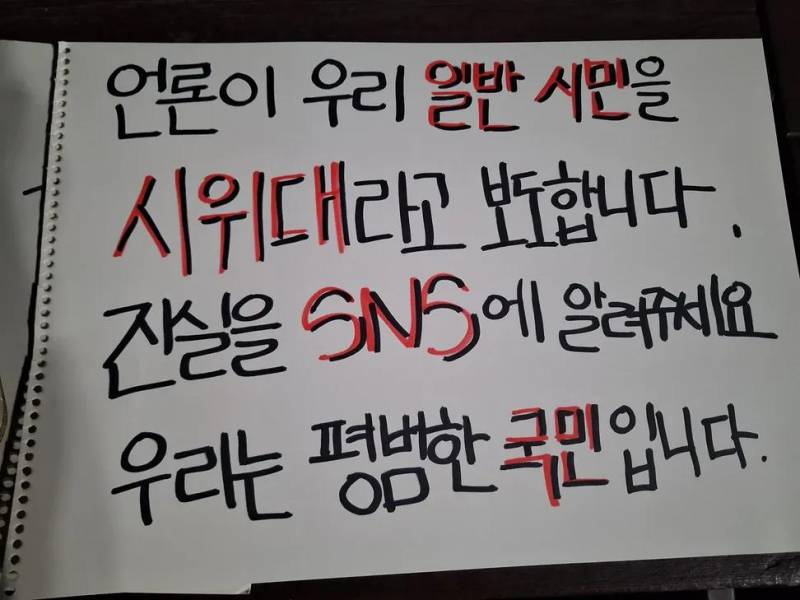 언론이 우리 일반 시민을
시위대라고 보도합니다.
진실을 SNS에 알려주세요
우리는 평범한 국민입니다.